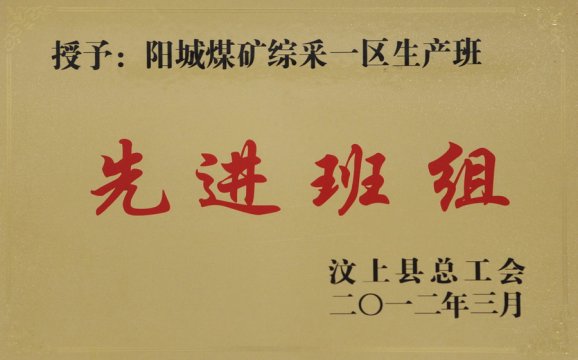 授予：阳城煤矿综采一区生产班
先进班组
汶上县总工会
二〇一二年三月